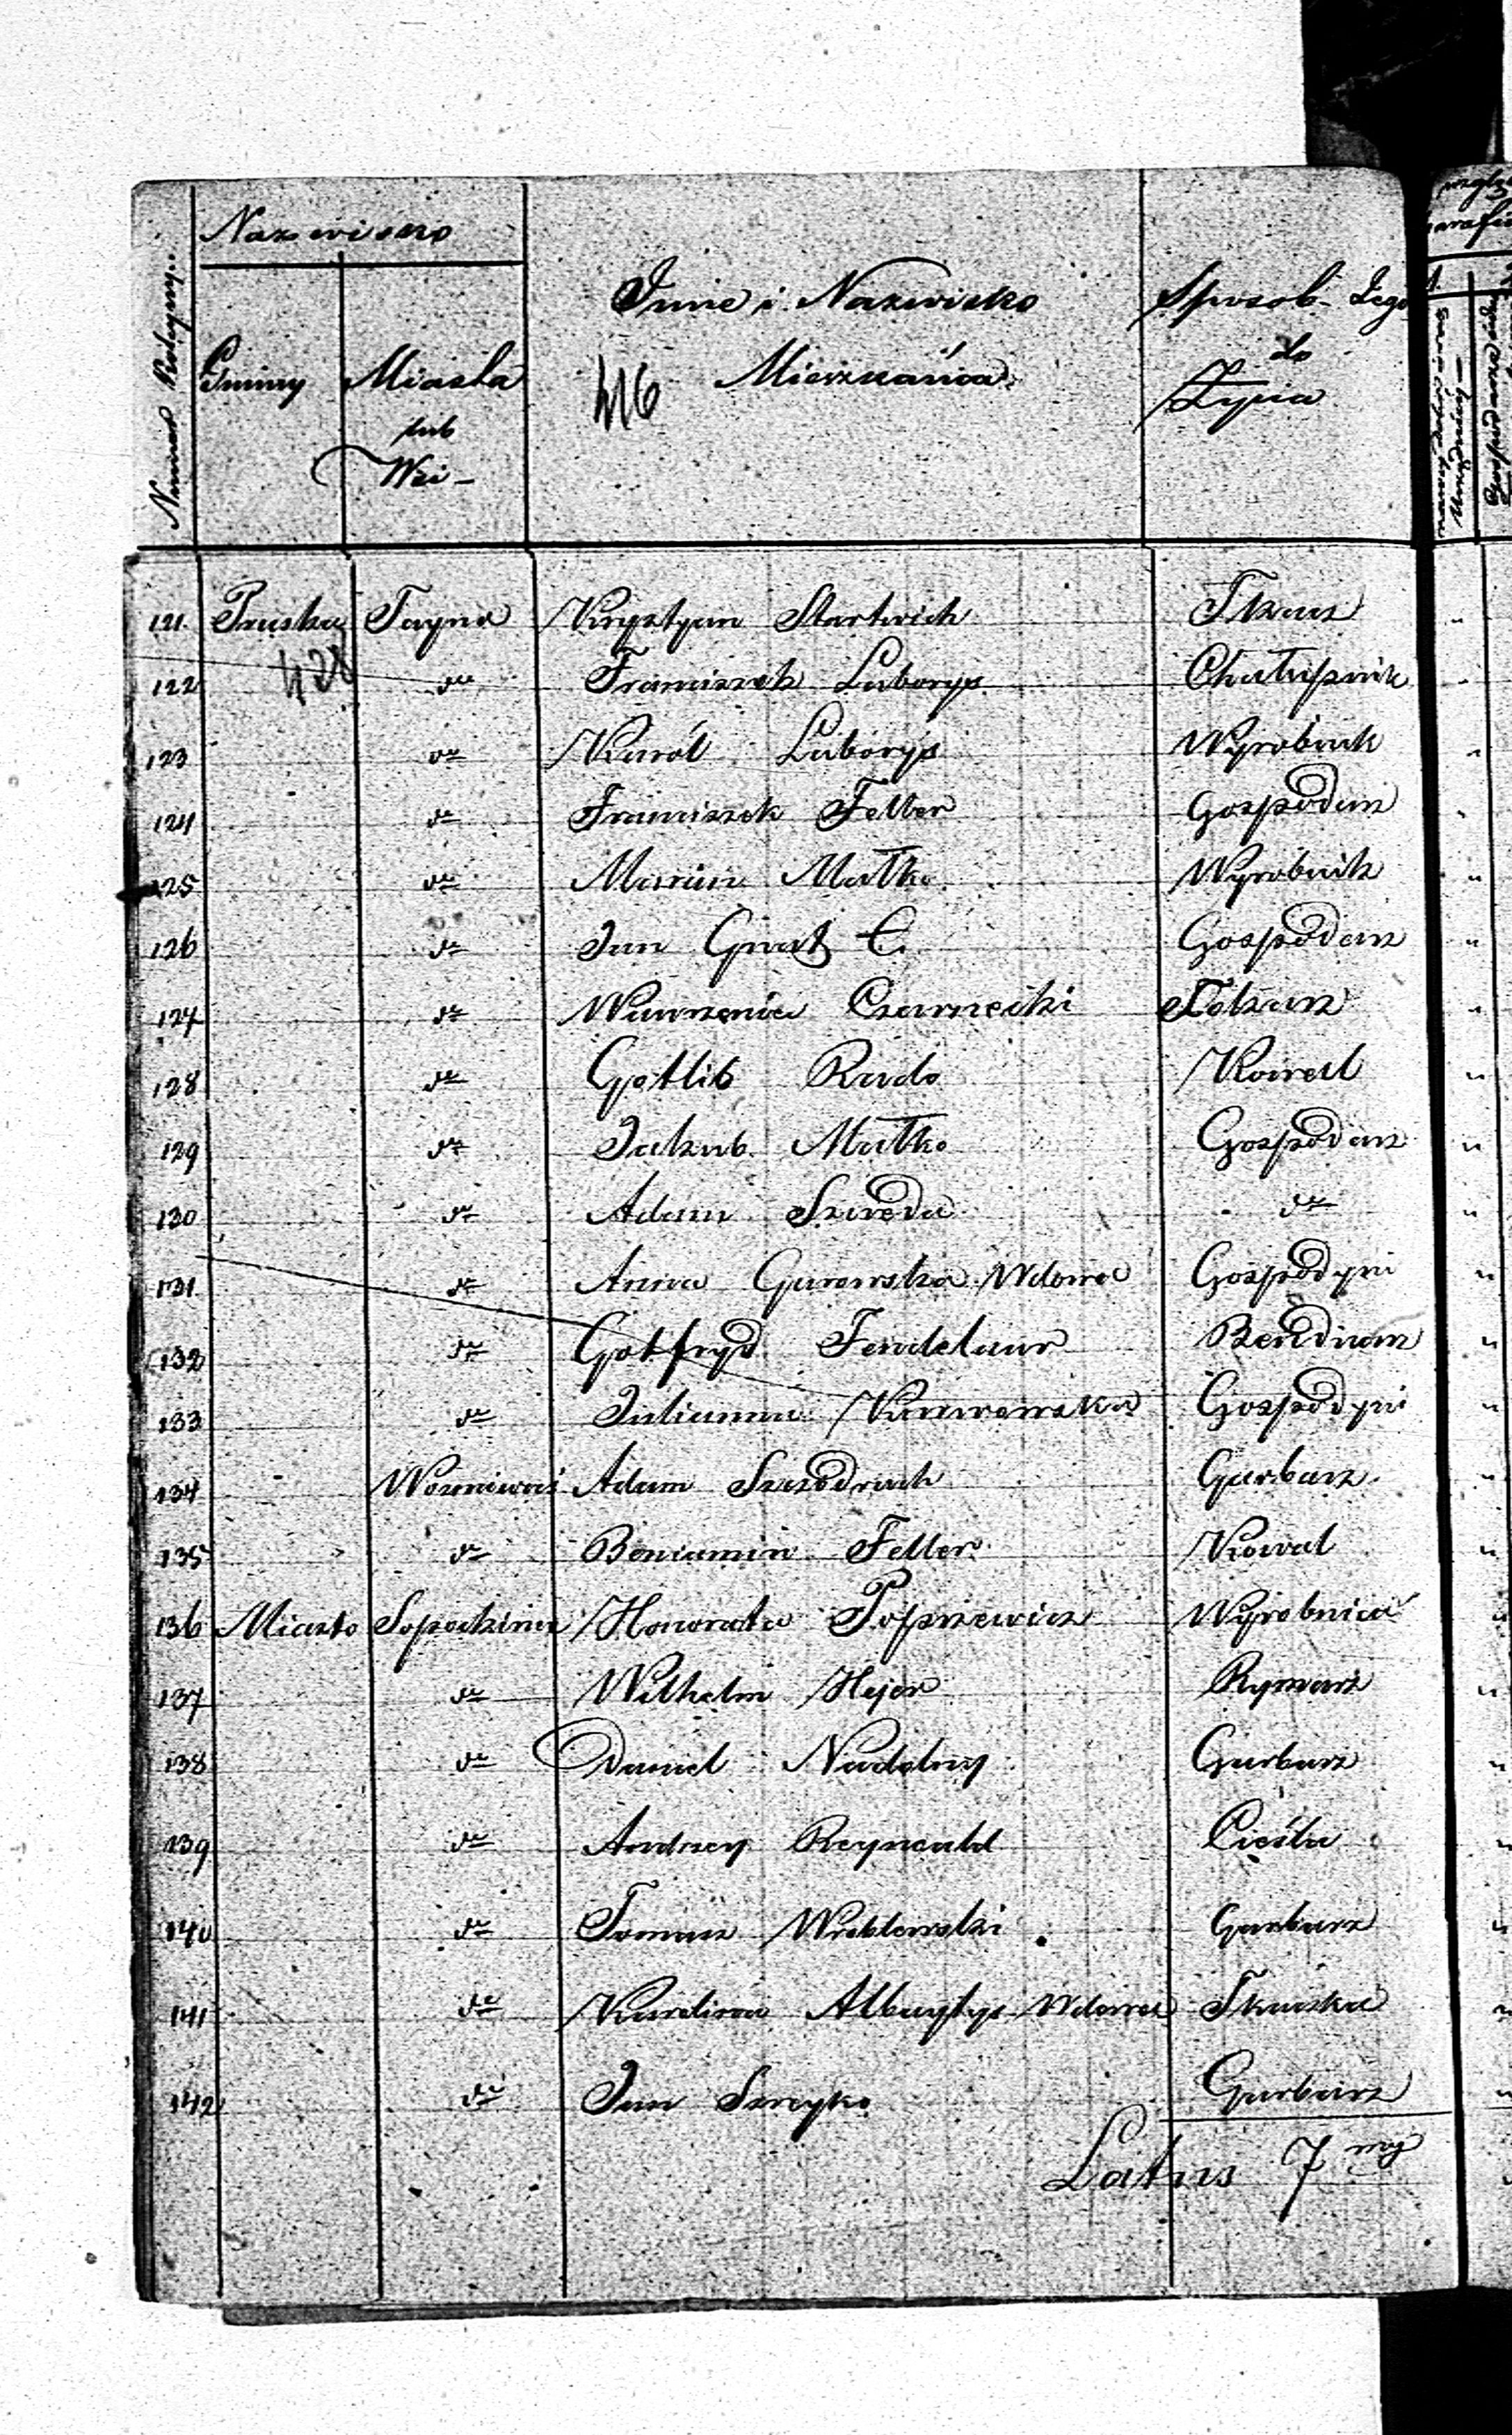 Nazwisko
Numer Bieżący
Gminy
Miasta
lub
Wsi
Imie i Nazwisko
Mieszkańca
416
Sposob Jego
do
Życia
121. Pruska Tayno Krysztyan Startwich Tkacz
428
122 de Franciszek Luborys Chałupnik
123 de Karól Luborys Wyrobnik
124 de Franciszek Feller Gospodarz
125 de Marcin Matko Wyrobnik
126 de Jan Gospodarz
127 de Wawrzenic Czarnecki
128 de Gotlib Rado Kowal
129 de Jakub Matko Gospodarz
130 de Adam Szweda de
131 de Anna Gurowska Wdowa Gospodyni
132 de Gotfryd Bednarz
133 de Julianna Gospodyni
134 Woźniawieś Adam Szczodruch Garbarz
135 de Beniamin Feller Kowal
136 Miasto Sopockinie Honorata Wyrobnica
137 de Wilhelm Hejer Rymarz
138 de Daniel Nadolny Garbarz
139 de Andrzey Reynould Cieśla
140 de Tomasz Wroblewski Garbarz
141 de Karolina Wdowa Tkaczka
142 de Jan Szreyko Garbarz
Latus 7 my